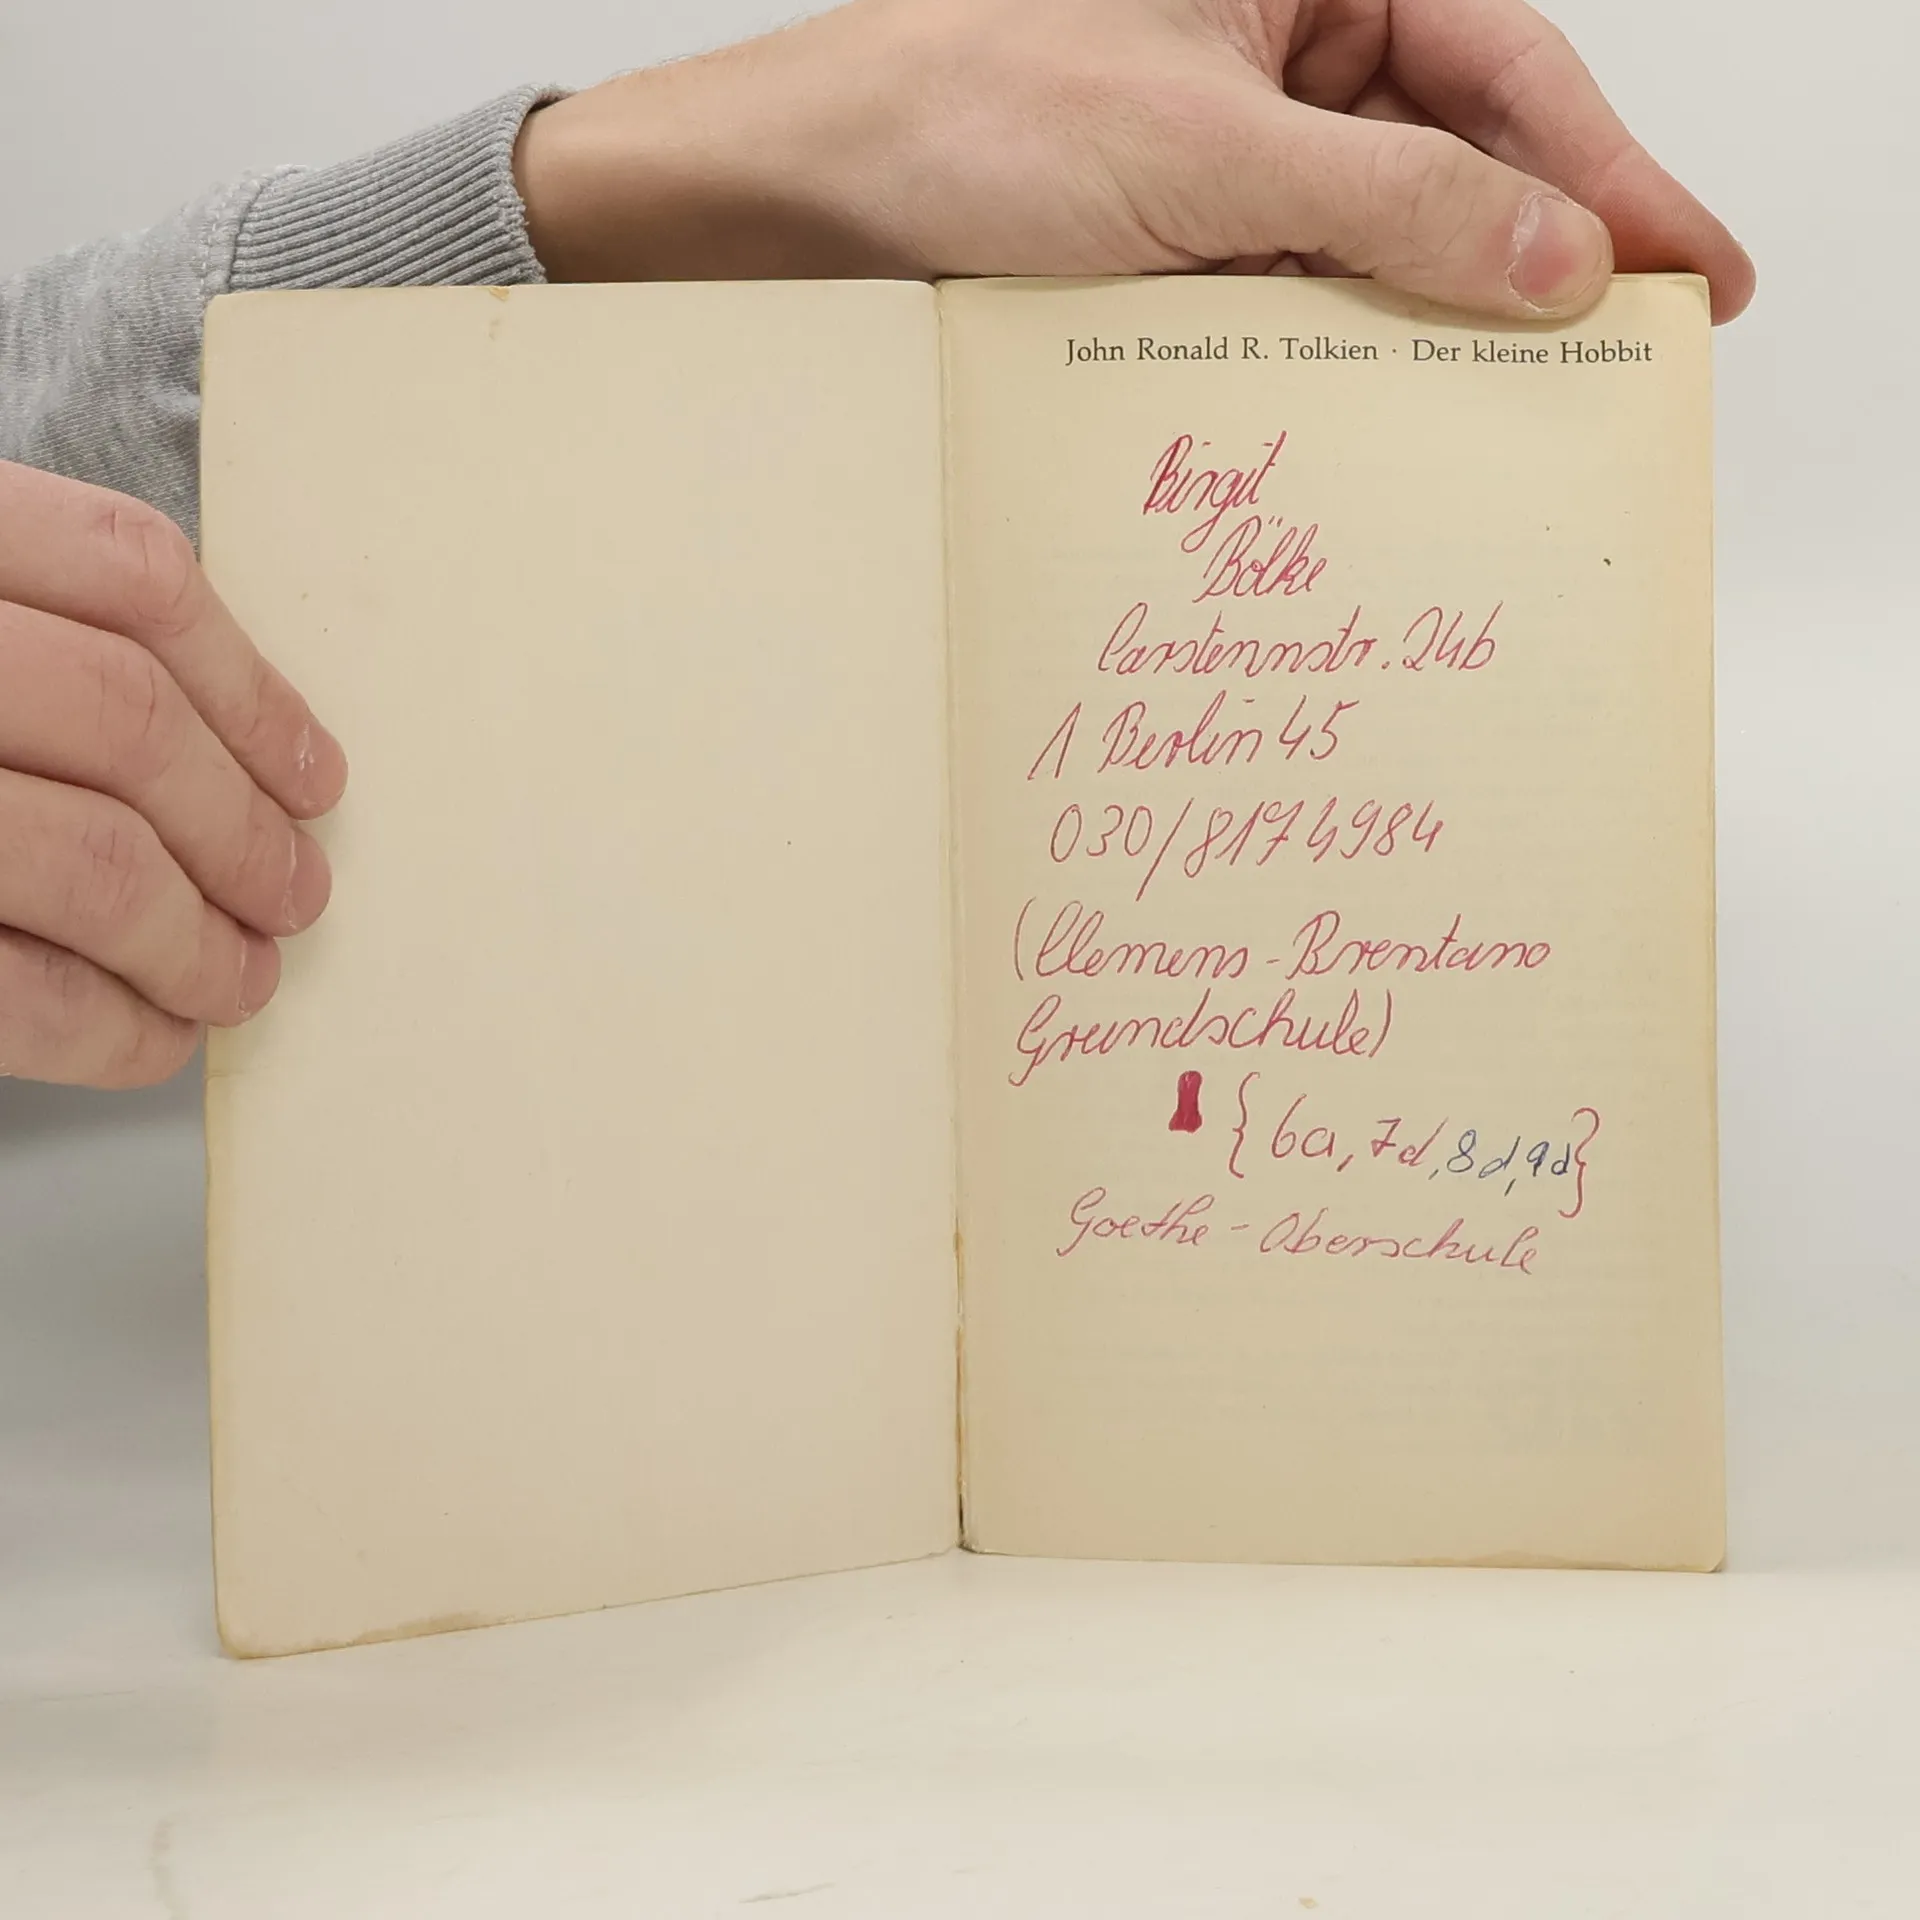 John Ronald R. Tolkien · Der kleine Hobbit
Birgit
Bölke
Carstennstr. 24b
1 Berlin 45
030/8174984
(Clemens-Brentano
Grundschule)
{6a, 7d, 8d, 9d}
Goethe-Oberschule